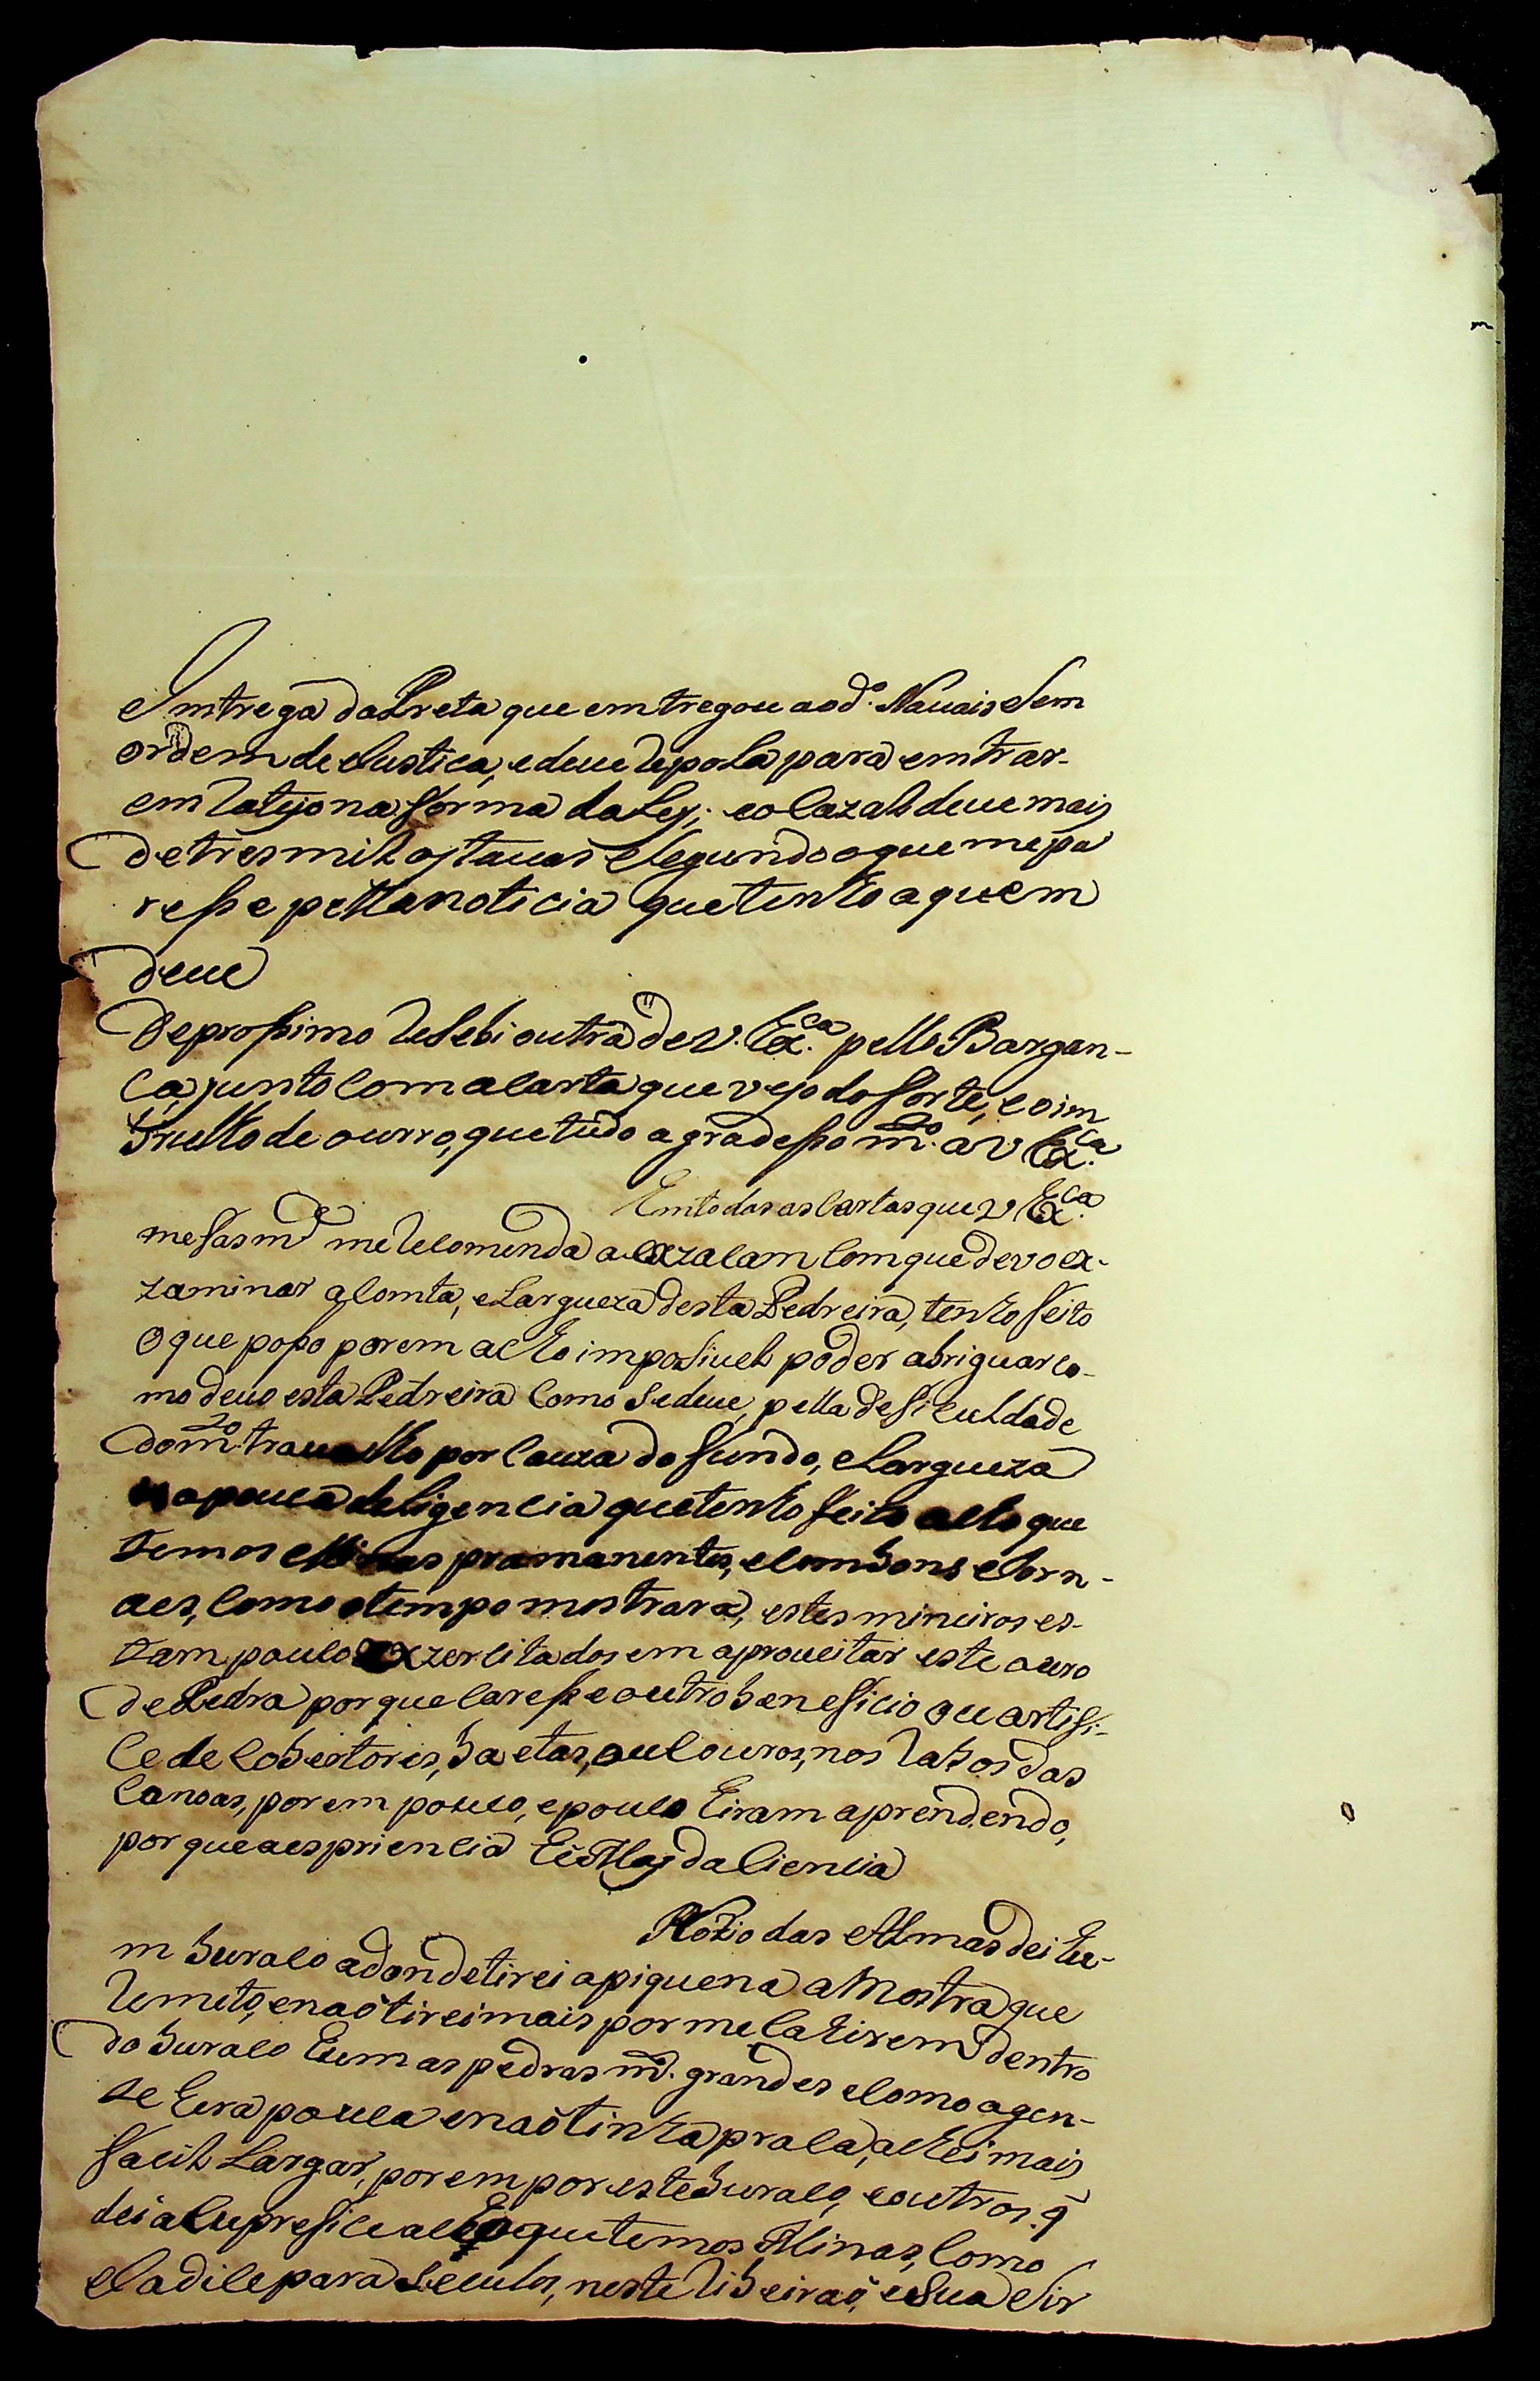 Imtrega da Preta que emtregou ao d.º Nauais Sem
ordem de Justiça, e deue depola para emtrar
em Rateyo na forma da Ley; e o Cazal deue mais
de tres mil oytauas Segundo o que me pa
resse pella noticia que tenho a quem
deue
De prossimo Resebi outra de V. Ex.ca pello Bargan-
ça, junto com a Carta que vejo do forte, e o im
Brulho de ourro, que tudo agradesso m.to a V Ex.ca
Em todas as Cartas que V Ex.ca
me fas m.ce me Recomenda a exzacam com que devo ex-
zaminar a Comta, e Largueza desta Pedreira, tenho feito
o que posso porem acho imposiuel poder abriguar co-
mo deuo esta Pedreira Como Se deue, pella defi culdade
do m.to trauallo por Cauza do fundo, e Largueza
a pouca deligencia que tenho feito acho que
temos Minas pramanentes, e Com bons Jorn-
aes, Como o tempo mostrara, estes mineiros es-
tam pouco exzercitados em aproueitar este ouro
de Pedra por que Caresse outro beneficio ou artifi-
ce de Cobertores, baetas, ou Couros, nos Rabos das
Canoas, porem pouco, e pouco hiram aprendendo,
por que a espriencia he May da Ciencia
No Rio das Almas dei hu-
m buraco adonde tirei a piquena a Mostra que
Remeto, e naõ tirei mais por me Cahirem dentro
do buraco humas pedras m.to grandes e Como a gen-
te hera pouca e naõ tinha pra la, achei mais
facil Largar, porem por este buraco, e outros q̃
dei a Cuprefice acho que temos Minas, Como
la dice para Seculos, neste Ribeiraõ, e Sua Sir